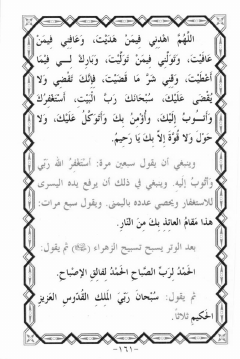 اللَّهُمَّ اهْدِنِي فِيمَنْ هَدَيْتَ، وَعَافِنِي فِيمَنْ
عَافَيْتَ، وَتَوَلَّنِي فِيمَنْ تَوَلَّيْتَ، وَبَارِكْ لِـي فِيْمَا
أَعْطَيْتَ، وَقِنِي شَرَّ مَا قَضَيْتَ، فَإِنَّكَ تَقْضِي وَلَا
يُقْضَى عَلَيْكَ، سُبْحَانَكَ رَبَّ الْبَيْتِ، أَسْتَغْفِرُكَ
وَأَتُـوبُ إِلَيْكَ، وَأُؤْمِنُ بِكَ وَأَتَوكَّلُ عَلَيْكَ، وَلَا
حَوْلَ وَلَا قُوَّةَ إِلَّا بِكَ يَا رَحِيمُ.
وينبغي أن يقول سبعين مرة: أَسْتَغْفِرُ اللَّهَ رَبِّي
وَأَتُوبُ إِلَيهِ. وينبغي في ذلك أن يرفع يده اليسرى
للاستغفار ويحصي عدده باليمنى. ويقول سبع مرات:
هَذَا مَقَامُ العَائِذِ بِكَ مِنَ النَّارِ.
بعد الوتر يسبح تسبيح الزهراء ثم يقول:
الحَمْدُ لِرَبِّ الصَّبَاحِ الحَمْدُ لِفَالِقِ الإِصْبَاحِ.
ثم يقول: سُبْحَانَ رَبِّيَ المَلِكِ القُدُّوسِ العَزِيزِ
الحَكِيمِ ثلاثاً.
-١٦١-